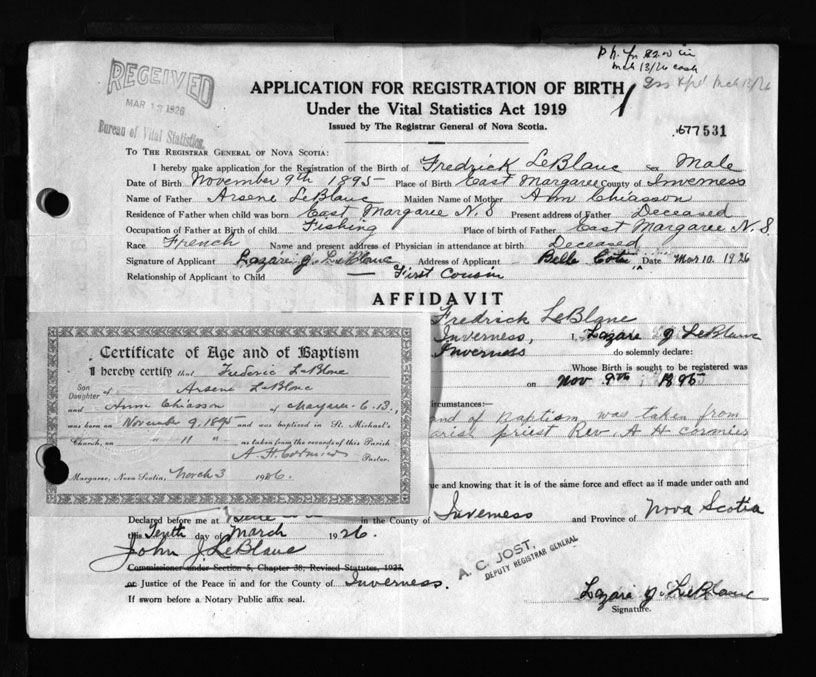 Pd. fr $2.00 in
Mch 13/26 cash
Mch 13/26
RECEIVED
MAR 13 1926
Bureau of Vital Statistics.
APPLICATION FOR REGISTRATION OF BIRTH
Under the Vital Statistics Act 1919
Issued by The Registrar General of Nova Scotia.
677531
TO THE REGISTRAR GENERAL OF NOVA SCOTIA:
I hereby make application for the Registration of the Birth of Fredrick LeBlanc Sex Male
Date of Birth November 9th 1895 Place of Birth East Margaree County of Inverness
Name of Father Arsene LeBlanc Maiden Name of Mother Ann Chiasson
Residence of Father when child was born East Margaree N.S Present address of Father Deceased
Occupation of Father at Birth of child Fishing Place of birth of Father East Margaree N.S.
Race French Name and present address of Physician in attendance at birth Deceased
Signature of Applicant Lazare J. LeBlanc Address of Applicant Belle Cote Date Mar 10. 1926
Relationship of Applicant to Child — First Cousin
AFFIDAVIT
Fredrick LeBlanc
Inverness, I, Lazare J LeBlanc
Inverness do solemnly declare:
Whose Birth is sought to be registered was
on Nov 9th 1895
circumstances:—
and of Baptism was taken from
parish priest Rev. A H Cormier
ue and knowing that it is of the same force and effect as if made under oath and
Certificate of Age and of Baptism
I hereby certify that Frederic LeBlanc
Son
Daughter of Arsene LeBlanc
and Ann Chiasson of Margaree C.B.,
was born on November 9, 1895 and was baptized in St. Michael's
Church, on " 11 " as taken from the records of this Parish
A. H. Cormier Pastor.
Margaree, Nova Scotia, March 3 1926.
Declared before me at Belle Cote in the County of Inverness and Province of Nova Scotia
this Tenth day of March 1926.
John J. LeBlanc
Commissioner under Section 5, Chapter 38, Revised Statutes, 1923,
or Justice of the Peace in and for the County of Inverness.
If sworn before a Notary Public affix seal.
A. C. JOST,
DEPUTY REGISTRAR GENERAL
Lazare J. LeBlanc
Signature.